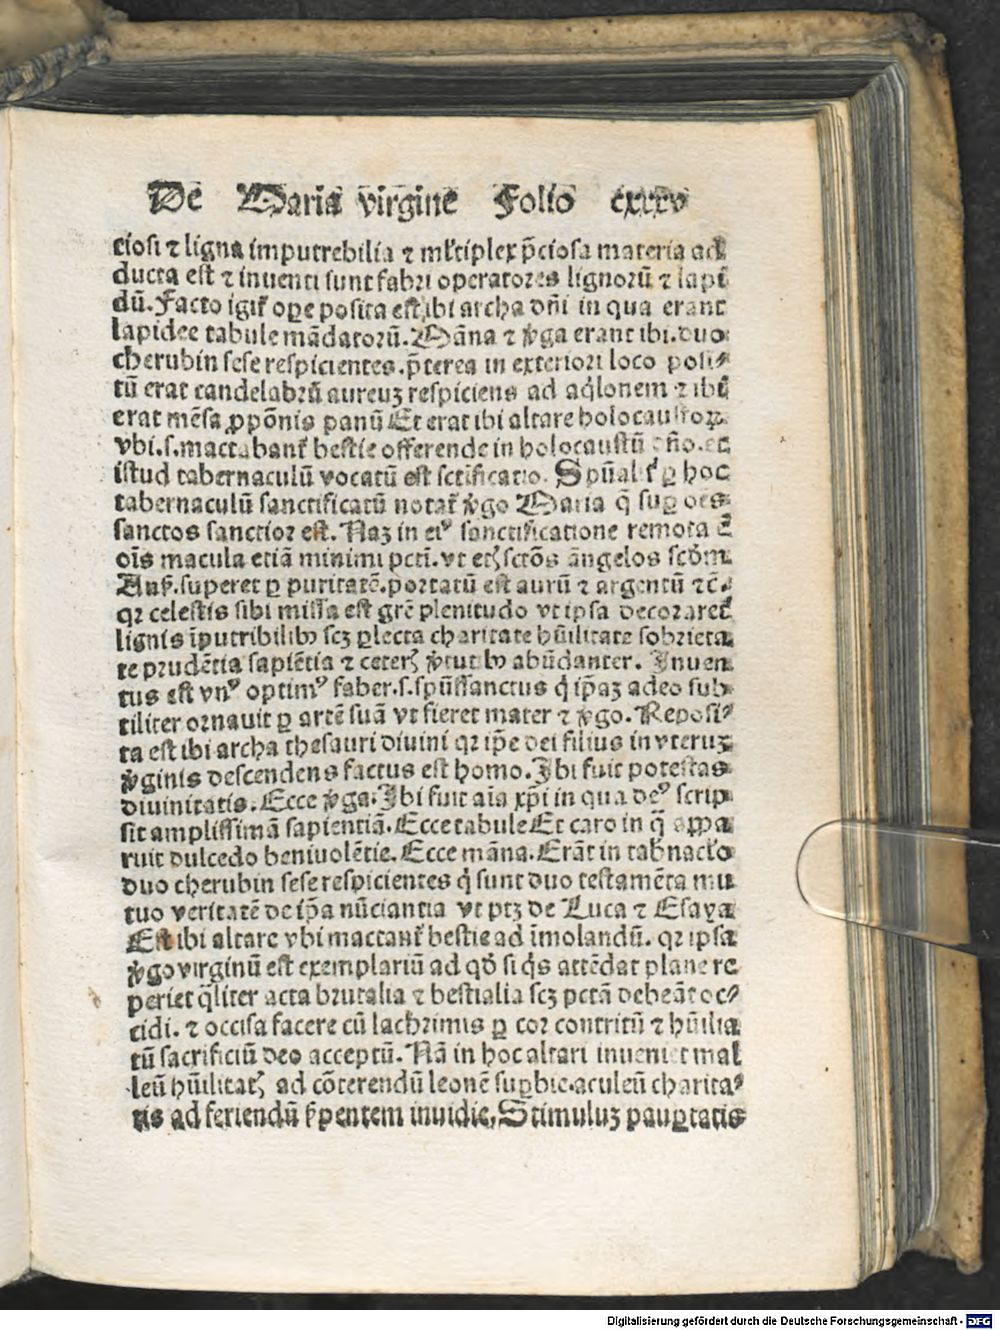 De Maria virgine Folio cxxxv
ciosi ⁊ ligna imputrebilia ⁊ ml̓tiplex p̄ciosa materia ad
ducta est ⁊ inuenti sunt fabri operatores lignorū ⁊ lapi
dū. Facto igit̓ oꝑe posita est ibi archa dn̄i in qua erant
lapidee tabule mādatorū. Māna ⁊ v̓ga erant ibi. duo
cherubin sese respicientes. p̄terea in exteriori loco posi⸗
tū erat candelabrū aureuꝫ respiciens ad aq̓lonem ⁊ ibi
erat mēsa ꝓpōnis panū Et erat ibi altare holocaustoꝝ
vbi .s. mactabant̓ bestie offerende in holocaustū dn̄o. et
istud tabernaculū vocatū est sctificatio. Spūalit̓ ꝑ hoc
tabernaculū sanctificatū notat̓ v̓go Maria q̄ suꝑ oēs
sanctos sanctior est. Naꝫ in eiꝰ sanctificatione remota ē
oīs macula etiā minimi pcti. vt etꝭ sctōs āngelos scdm̄
Ans̓. superet ꝑ puritatē. portatū est aurū ⁊ argentū ⁊c̄.
qꝛ celestis sibi missa est grē plenitudo vt ipsa decoraret̓
lignis īputribilibꝰ scꝫ ꝑlecta charitate hūilitate sobrieta
te prudētia sapiētia ⁊ ceterꝭ v̓tutibꝰ abūdanter. Inuen
tus est vnꝰ optimꝰ faber .s. spūssanctus q̓ ip̄aꝫ adeo sub
tiliter ornauit ꝑ artē suā vt fieret mater ⁊ v̓go. Reposi⸗
ta est ibi archa thesauri diuini qꝛ ip̄e dei filius in vteruꝫ
v̓ginis descendens factus est homo. Ibi fuit potestas
diuinitatis. Ecce v̓ga. Ibi fuit aīa xp̄i in qua deꝰ scrip
sit amplissimā sapientiā. Ecce tabule Et caro in q̄ appa
ruit dulcedo beniuolētie. Ecce māna. Erāt in tab̓naclo
duo cherubin sese respicientes q̓ sunt duo testamēta mu
tuo veritatē de ip̄a nūciantia vt ptꝫ de Luca ⁊ Esaya
Est ibi altare vbi mactant̓ bestie ad īmolandū. qꝛ ipsa
v̓go virginū est exemplariū ad qd̓ si q̓s attēdat plane re
periet q̄liter acta brutalia ⁊ bestialia scꝫ pctā debeāt oc⸗
cidi. ⁊ occisa facere cū lachrimis ꝑ cor contritū ⁊ hūilia
tū sacrificiū deo acceptū. Nā in hoc altari inueniet mal
leū hūilitatꝭ ad cōterendū leonē suꝑbie. aculeū charita⸗
tis ad feriendū s̓pentem inuidie, Stimuluꝫ pauꝑtatis
Digitalisierung gefördert durch die Deutsche Forschungsgemeinschaft - DFG